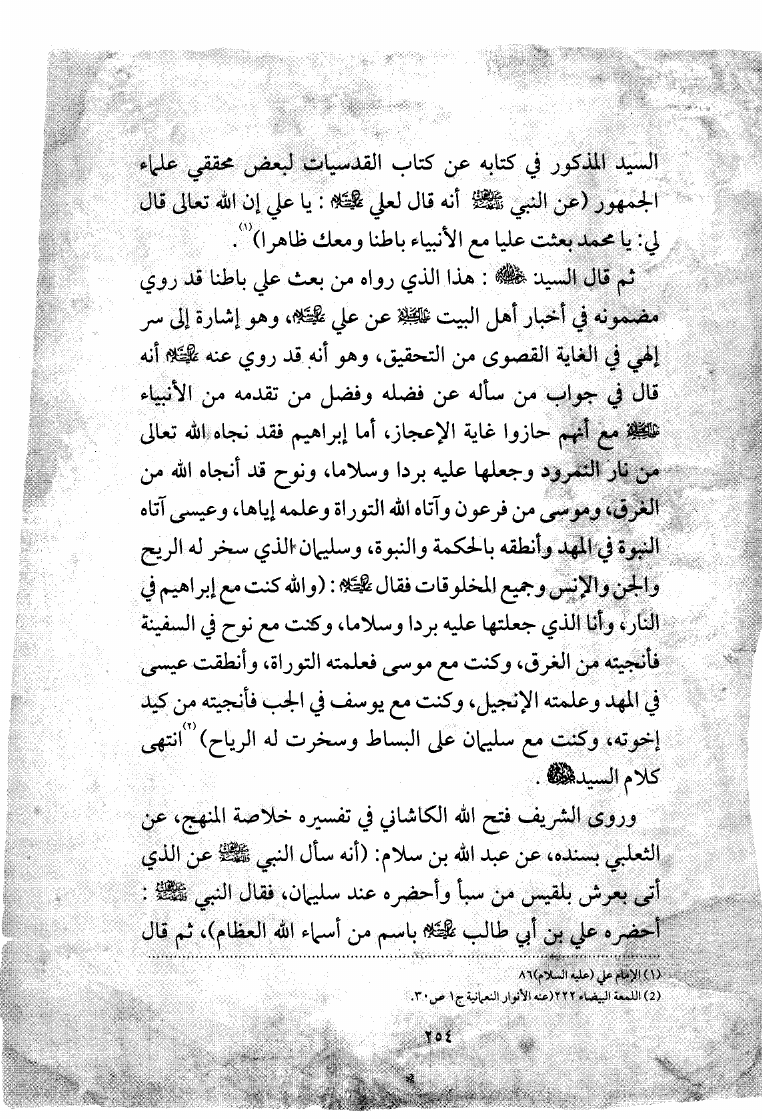 السيد المذكور في كتابه عن كتاب القدسيات لبعض محققي علماء
الجمهور (عن النبي ﷺ أنه قال لعلي عليه السلام : يا علي إن الله تعالى قال
لي: يا محمد بعثت عليا مع الأنبياء باطنا ومعك ظاهرا)(١).
ثم قال السيد : هذا الذي رواه من بعث علي باطنا قد روي
مضمونه في أخبار أهل البيت عن علي عليه السلام، وهو إشارة إلى سر
إلهي في الغاية القصوى من التحقيق، وهو أنه قد روي عنه عليه السلام أنه
قال في جواب من سأله عن فضله وفضل من تقدمه من الأنبياء
مع أنهم حازوا غاية الإعجاز، أما إبراهيم فقد نجاه الله تعالى
من نار النمرود وجعلها عليه بردا وسلاما، ونوح قد أنجاه الله من
الغرق، وموسى من فرعون وآتاه الله التوراة وعلمه إياها، وعيسى آتاه
النبوة في المهد وأنطقه بالحكمة والنبوة، وسليمان الذي سخر له الريح
والجن والإنس وجميع المخلوقات فقال عليه السلام : (والله كنت مع إبراهيم في
النار، وأنا الذي جعلتها عليه بردا وسلاما، وكنت مع نوح في السفينة
فأنجيته من الغرق، وكنت مع موسى فعلمته التوراة، وأنطقت عيسى
في المهد وعلمته الإنجيل، وكنت مع يوسف في الجب فأنجيته من كيد
إخوته، وكنت مع سليمان على البساط وسخرت له الرياح)(٢) انتهى
كلام السيد .
وروى الشريف فتح الله الكاشاني في تفسيره خلاصة المنهج، عن
الثعلبي بسنده، عن عبد الله بن سلام: (أنه سأل النبي ﷺ عن الذي
أتى بعرش بلقيس من سبأ وأحضره عند سليمان، فقال النبي ﷺ :
أحضره علي بن أبي طالب عليه السلام باسم من أسماء الله العظام)، ثم قال
(١) الإمام علي (عليه السلام)٨٦
(2) اللمعة البيضاء ٢٢٢(عنه الأنوار النعمانية ج١ ص٣٠.
٢٥٤